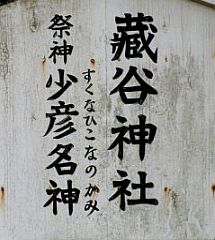 藏谷神社
すくなひこなのかみ
祭神 少彦名神